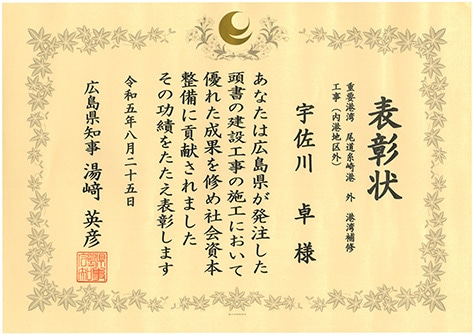 表彰状
重要港湾 尾道糸崎港 外 港湾補修
工事(内港地区外)
宇佐川 卓 様
あなたは広島県が発注した
頭書の建設工事の施工において
優れた成果を修め社会資本
整備に貢献されました
その功績をたたえ表彰します
令和五年八月二十五日
広島県知事 湯﨑 英彦